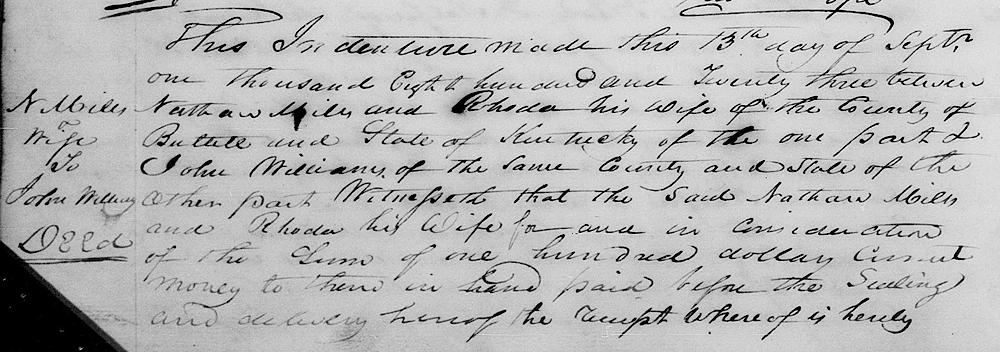 This Indenture made this 13th day of Septr
one thousand Eight hundred and Twenty three between
N Mills
Nathan Mills and Rhoda his Wife of the County of
Wife
Butler and State of Kentucky of the one part &
To
John Williams, of the Same County and State of the
John Williams
other part Witnesseth that the Said Nathan Mills
Deed
and Rhoda his Wife for and in Consideration
of the Sum of one hundred dollars Current
money to them in hand paid before the Sealing
and delivery hereof the receipt Whereof is hereby